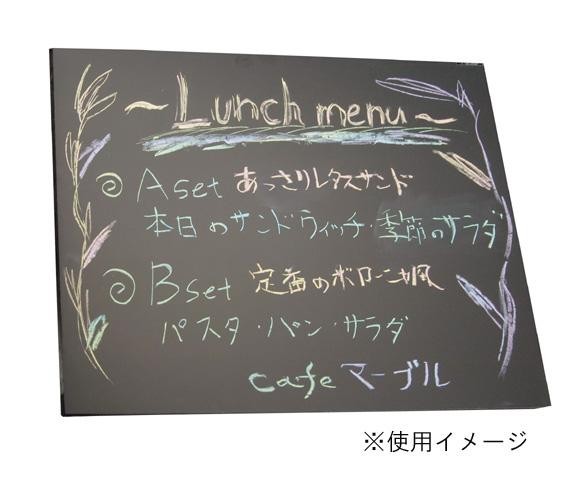 ~Lunch menu~
◎Aset あっさりレタスサンド
本日のサンドウィッチ・季節のサラダ
◎Bset 定番のボローニャ風
パスタ・パン・サラダ
cafe マーブル
※使用イメージ